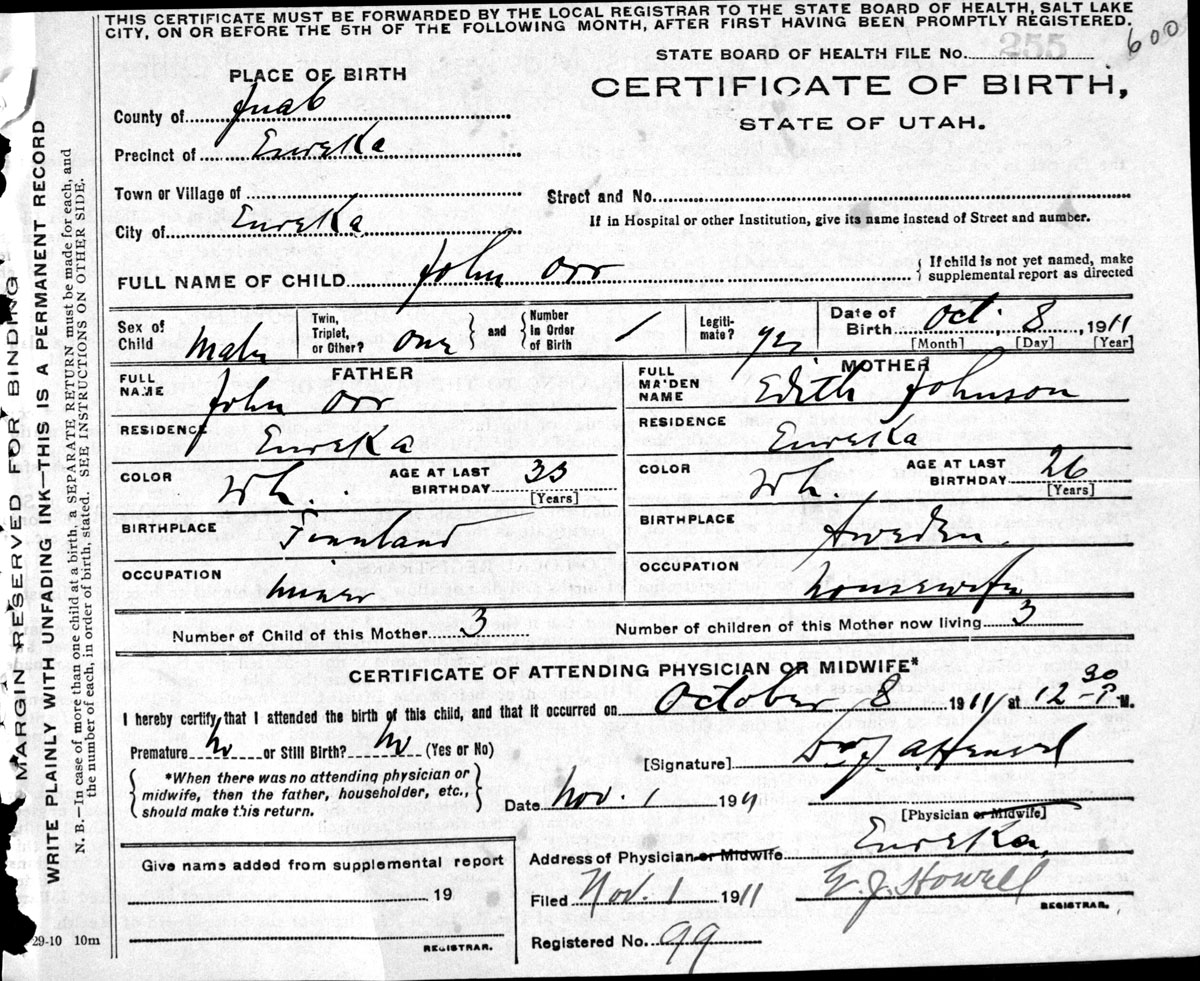 THIS CERTIFICATE MUST BE FORWARDED BY THE LOCAL REGISTRAR TO THE STATE BOARD OF HEALTH, SALT LAKE
CITY, ON OR BEFORE THE 5TH OF THE FOLLOWING MONTH, AFTER FIRST HAVING BEEN PROMPTLY REGISTERED.
600
STATE BOARD OF HEALTH FILE No. 255
PLACE OF BIRTH
CERTIFICATE OF BIRTH,
STATE OF UTAH.
County of Juab
Precinct of Eureka
Town or Village of
Street and No.
City of Eureka
If in Hospital or other Institution, give its name instead of Street and number.
FULL NAME OF CHILD John Orr { If child is not yet named, make
supplemental report as directed
Sex of Child Male
Twin, Triplet, or Other? One } and { Number in Order of Birth 1
Legitimate? yes
Date of Birth Oct. 8, 1911
[Month] [Day] [Year]
FATHER
FULL NAME John Orr
RESIDENCE Eureka
COLOR Wh. AGE AT LAST BIRTHDAY 33
[Years]
BIRTHPLACE Finnland
OCCUPATION miner
MOTHER
FULL MAIDEN NAME Edith Johnson
RESIDENCE Eureka
COLOR Wh. AGE AT LAST BIRTHDAY 26
[Years]
BIRTHPLACE Sweden
OCCUPATION housewife
Number of Child of this Mother 3
Number of children of this Mother now living 3
CERTIFICATE OF ATTENDING PHYSICIAN OR MIDWIFE*
I hereby certify that I attended the birth of this child, and that it occurred on October 8 1911 at 12 30 P M.
Premature No or Still Birth? No (Yes or No)
[Signature]
{ *When there was no attending physician or
midwife, then the father, householder, etc.,
should make this return. }
Date Nov. 1 1911
[Physician or Midwife]
Address of Physician or Midwife Eureka
Filed Nov. 1 1911 E. J. Howell
REGISTRAR.
Registered No. 99
Give name added from supplemental report
19
REGISTRAR.
29-10 10m
MARGIN RESERVED FOR BINDING
WRITE PLAINLY WITH UNFADING INK—THIS IS A PERMANENT RECORD
N. B.—In case of more than one child at a birth, a SEPARATE RETURN must be made for each, and
the number of each, in order of birth, stated. SEE INSTRUCTIONS ON OTHER SIDE.